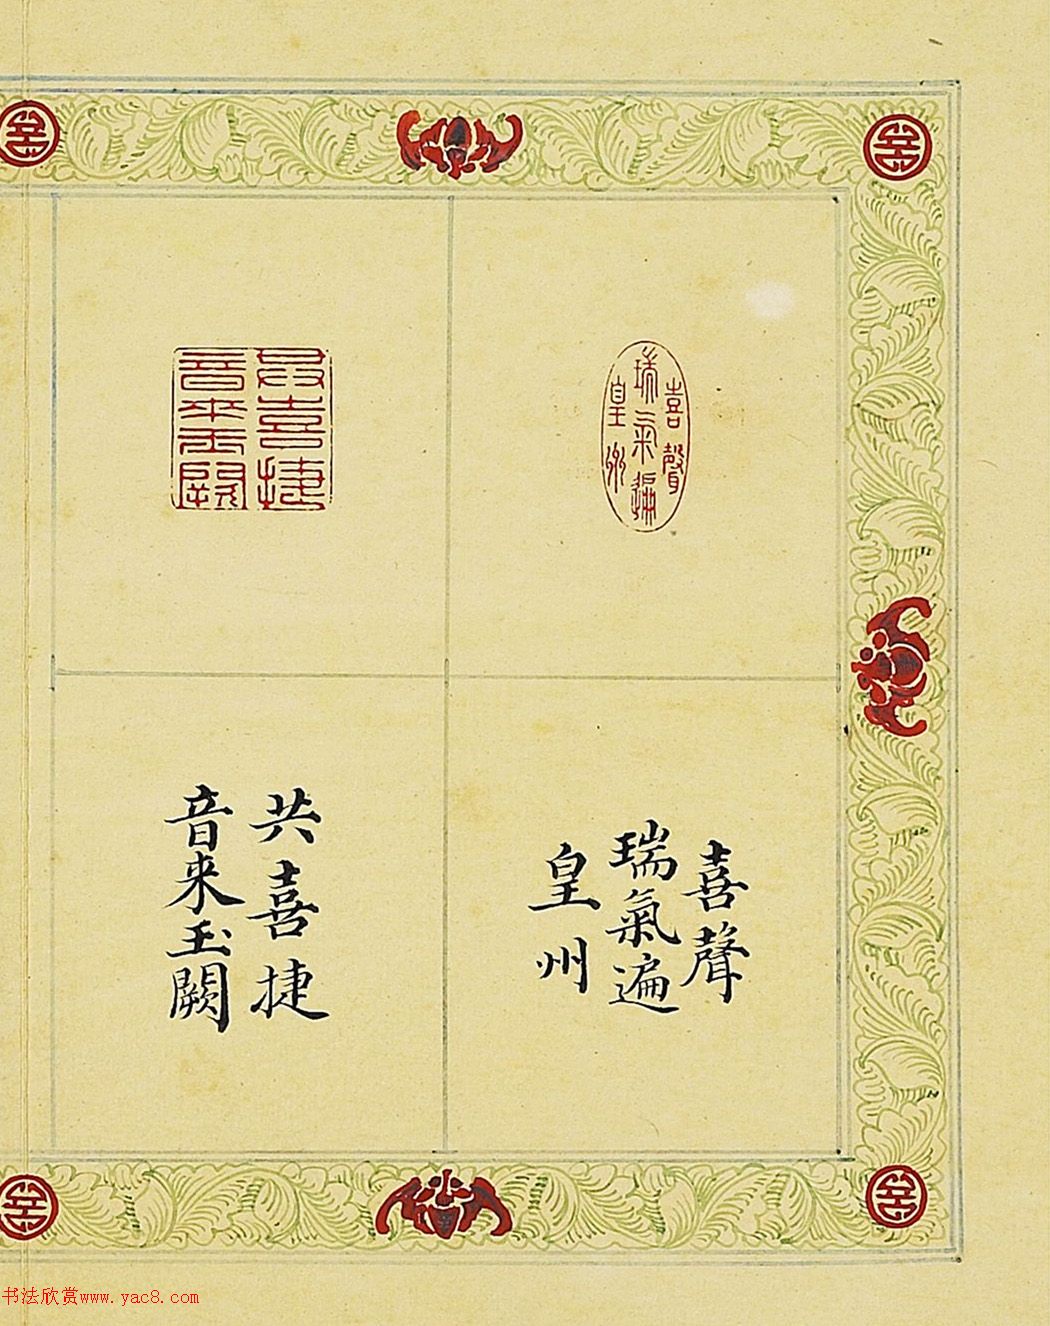 喜聲
瑞氣遍
皇州
共喜捷
音來玉闕
喜聲
瑞氣遍
皇州
共喜捷
音来玉闕
书法欣赏www.yac8.com